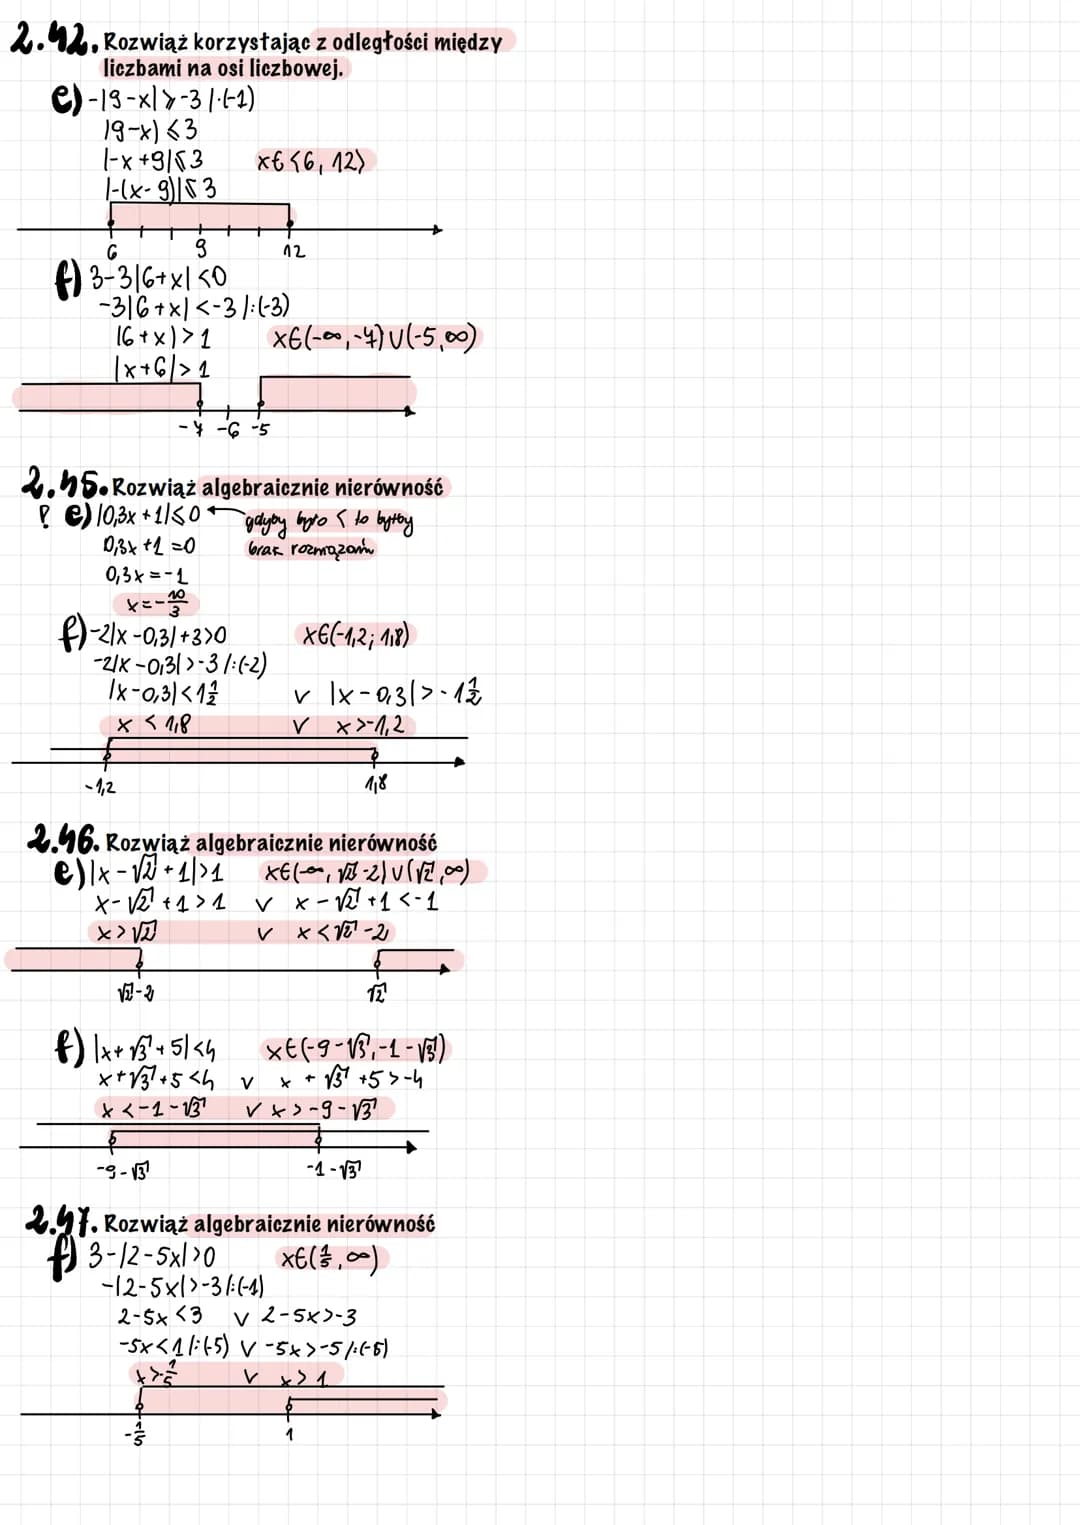 2.42. Rozwiąż korzystając z odległości między
liczbami na osi liczbowej.
e) -|9-x| ≥ -3 /·(-1)
|9-x| ≤ 3
|-x+9| ≤ 3 x∈<6, 12>
|-(x-9)| ≤ 3
6 9 12
f) 3-3|6+x| <0
-3|6+x| < -3 /:(-3)
|6+x| > 1 x∈(-∞, -7) ∪ (-5, ∞)
|x+6| > 1
-7 -6 -5
2.45. Rozwiąż algebraicznie nierówność
? e) |0,3x+1| ≤ 0 gdyby było < to byłby
0,3x+1 =0 brak rozwiązań
0,3x = -1
x = -10/3
f) -2|x-0,3|+3>0 x∈(-1,2; 1,8)
-2|x-0,3| > -3 /:(-2)
|x-0,3| < 1 1/2 ∨ |x-0,3| > -1 1/2
x < 1,8 ∨ x > -1,2
-1,2 1,8
2.46. Rozwiąż algebraicznie nierówność
e) |x-√2+1|>1 x∈(-∞, √2-2) ∪ (√2, ∞)
x-√2+1 > 1 ∨ x-√2+1 < -1
x > √2 ∨ x < √2-2
√2-2 √2
f) |x+√3+5| <4 x∈(-9-√3, -1-√3)
x+√3+5 <4 ∨ x+√3+5 > -4
x < -1-√3 ∨ x > -9-√3
-9-√3 -1-√3
2.47. Rozwiąż algebraicznie nierówność
f) 3-|2-5x|>0 x∈(1/5, ∞)
-|2-5x| > -3 /:(-1)
2-5x < 3 ∨ 2-5x > -3
-5x < 1 /:(-5) ∨ -5x > -5 /:(-5)
x > -1/5 ∨ x > 1
-1/5 1